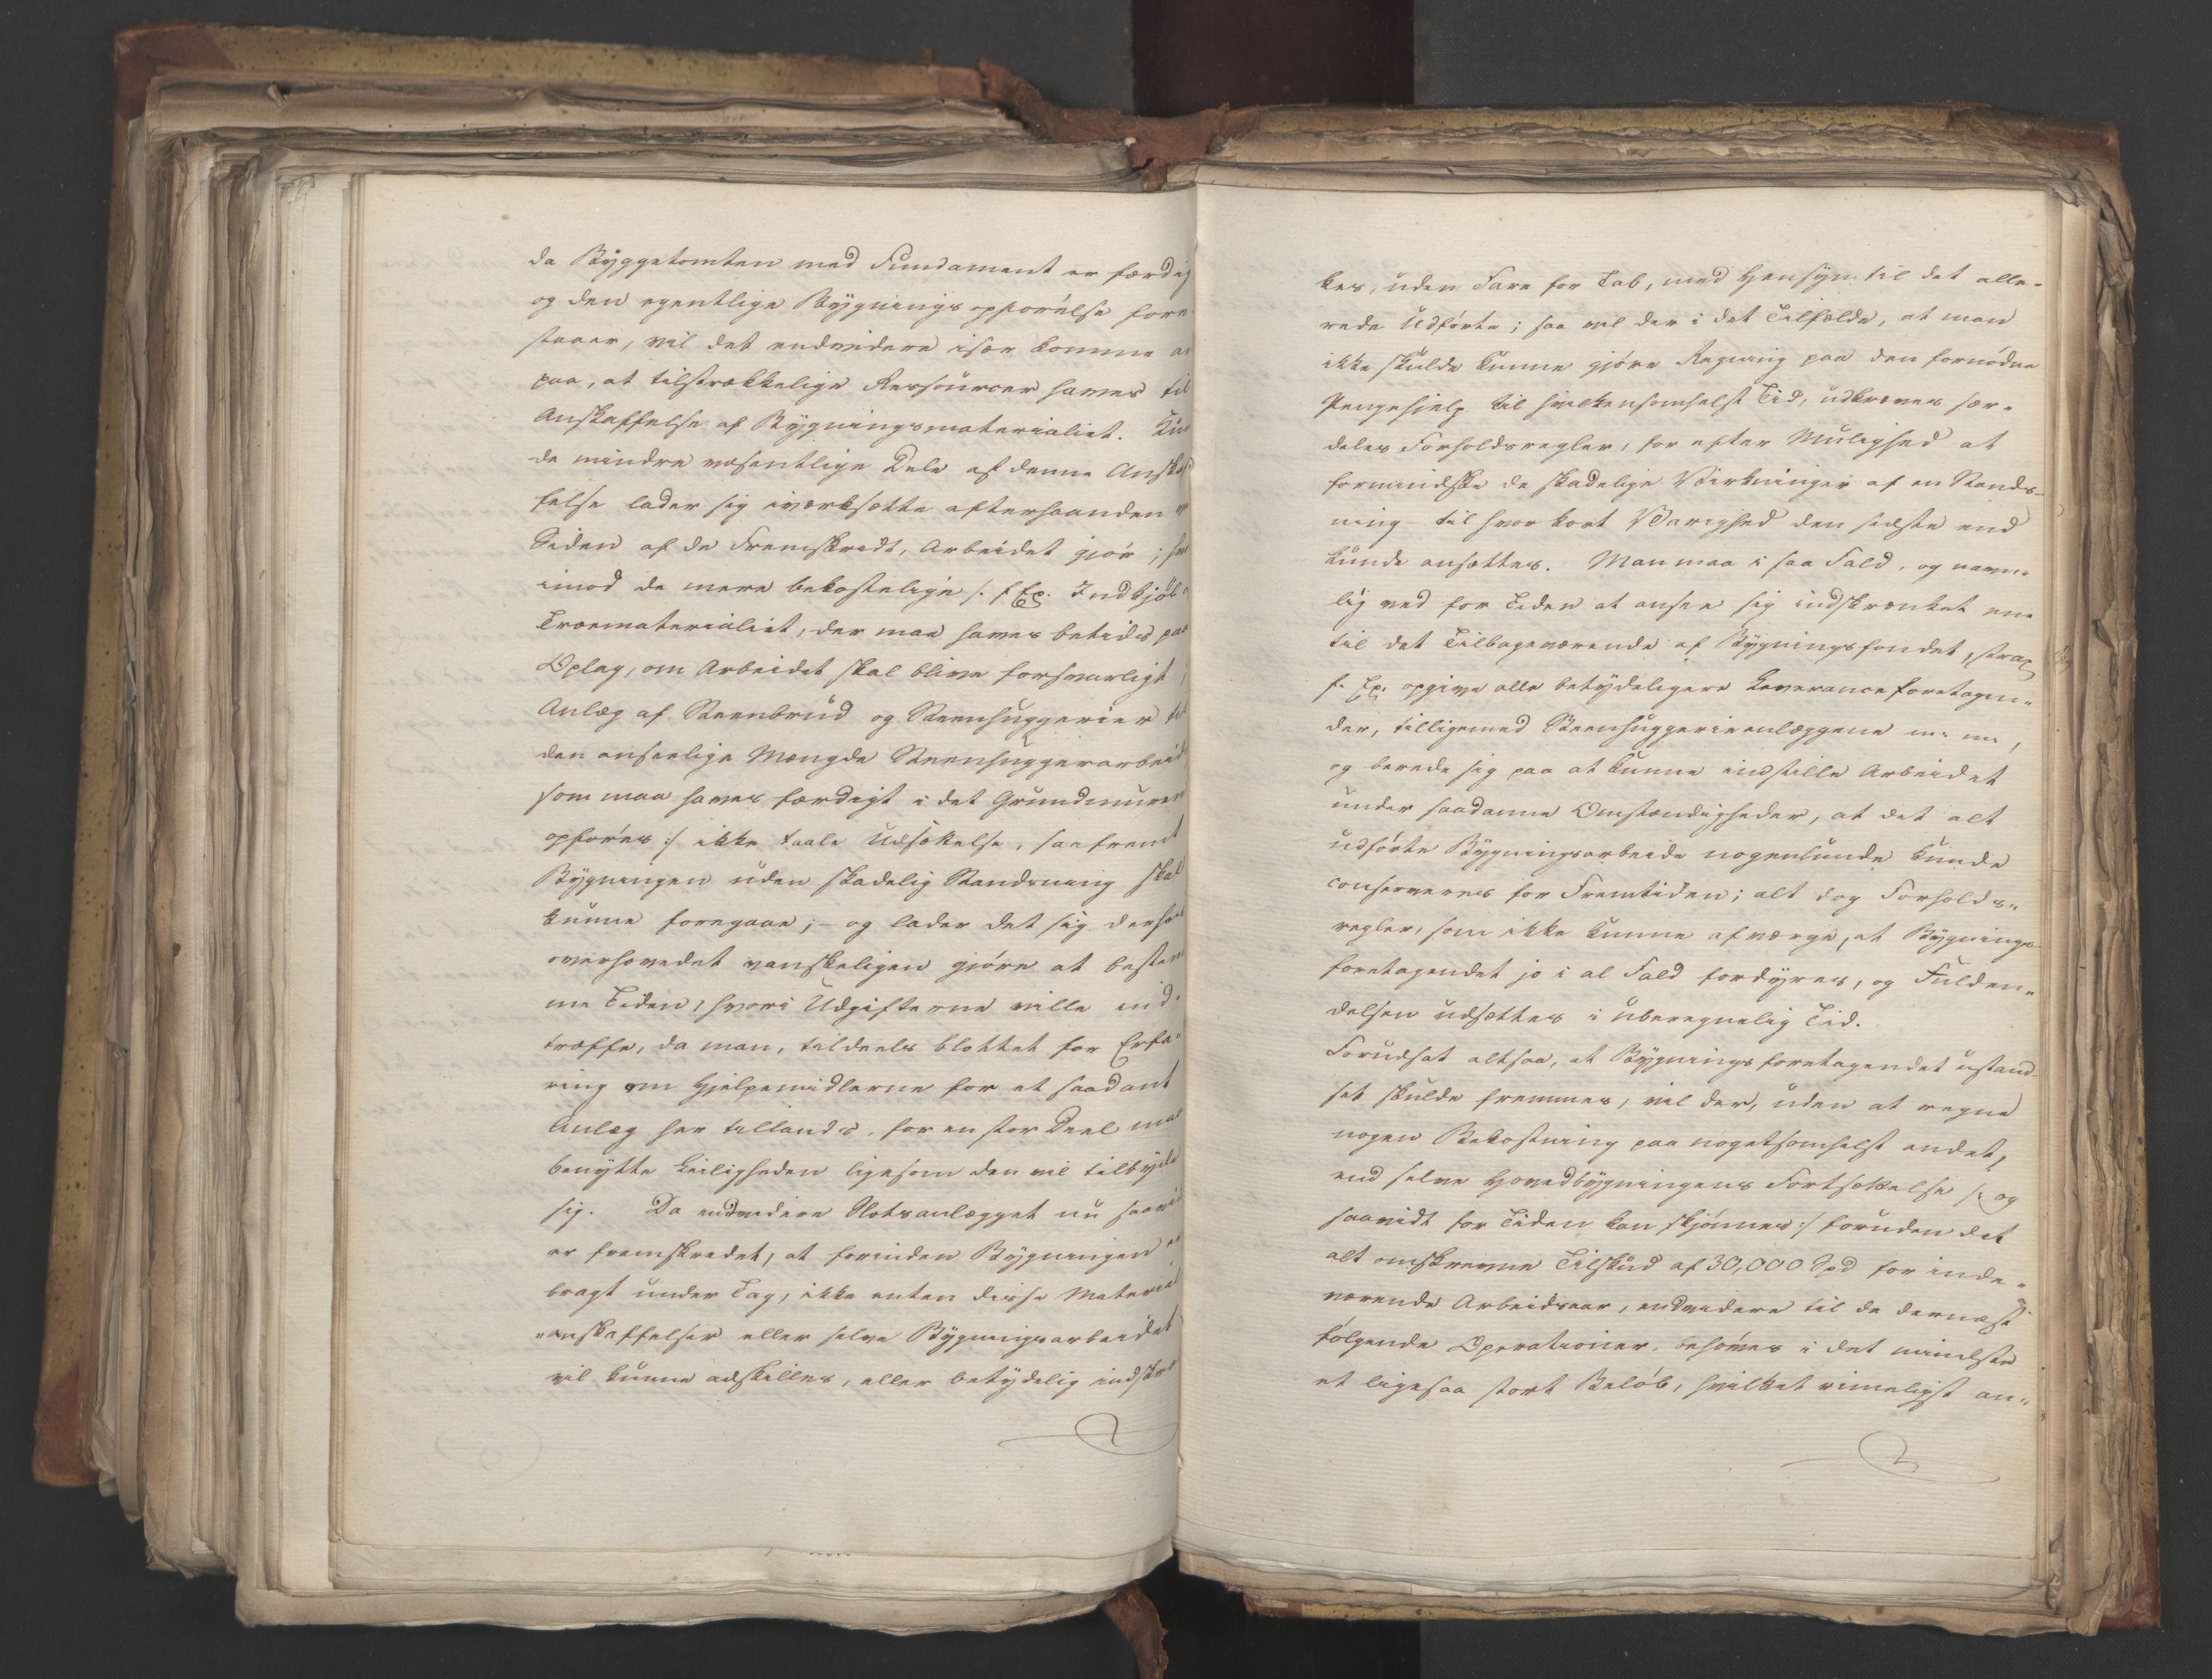 da Byggetomten med Fundament er færdig
og den egentlige Bygnings opførelse fore
staaer, vil det endvidere især komme an
paa, at tilstrækkelige Ressourcer haves til
Anskaffelse af Bygningsmaterialiet. Kun
de mindre væsentlige Dele af denne Anskaf
felse lader sig iværksætte efterhaanden
Siden af de Fremskridt, Arbeidet gjør; hvor
imod de mere bekostelige /: f Ex: Indkjøb
Træematerialiet, der maa haves betids paa
Oplag, om Arbeidet skal blive forsvarligt;
Anlæg af Steenbrud og Steenhuggerier til
den anseelige Mængde Steenhuggerarbeid
som maa haves færdigt i det Grundmuren
opføres :/ ikke taale Udsættelse, saafremt
Bygningen uden skadelig Standsning skal
kunne foregaae; - og lader det sig derhos
overhovedet vanskeligen gjøre at bestem
me Tiden, hvori Udgifterne ville ind-
træffe, da man, tildeels blottet for Erfa-
ring om Hjelpemidlerne for et saadant
Anlæg her tillands, for en stor Deel maa
benytte Leiligheden ligesom den vil tilbyde
sig. Da endvidere Slotsanlægget nu saavidt
er fremskredet, at forinden Bygningen er
bragt under Tag, ikke enten disse Material
"anskaffelser eller selve Bygningsarbeidet
vil kunne adskilles, eller betydelig indskræn
kes, uden Fare for Tab, med Hensyn til det alle-
rede Udførte; saa vil der i det Tilfælde, at man
ikke skulde kunne gjøre Regning paa den fornødne
Pengehjelp til hvilkensomhelst Tid, udkræves sær-
deles Forholdsregler, for efter Mulighed at
formindske de skadelige Virkninger af en Stands-
ning - til hvor kort Varighed den sidste end
kunde ansættes. Man maa i saa Fald, og navn-
lig ved for Tiden at ansee sig indskrænket ene
til det Tilbageværende af Bygningsfondet, strax
f. Ex: opgive alle betydeligere Leverance foretagen-
der, tilligemed Steenhuggerieanlæggene m: m:,
og berede sig paa at kunne indstille Arbeidet
under saadanne Omstændigheder, at det alt
udførte Bygningsarbeide nogenlunde kunde
conserveres for Fremtiden; alt dog Forholds-
regler, som ikke kunne afværge, at Bygnings-
foretagendet jo i al Fald fordyres, og Fulden-
delsen udsættes i uberegnelig Tid.
Forudsat altsaa, at Bygningsforetagendet ustand-
set skulde fremmes, vil der, uden at regne
nogen Bekostning paa nogetsomhelst andet,
end selve Hovedbygningens Fortsættelse /: og
saavidt for Tiden kan skjønnes :/ foruden det
alt omskrevne Tilskud af 30,000 Spd for inde-
værende Arbeidsaar, endvidere til de dernæst
følgende Operationer, behøves i det mindste
et ligesaa stort Beløb, hvilket rimeligst an-